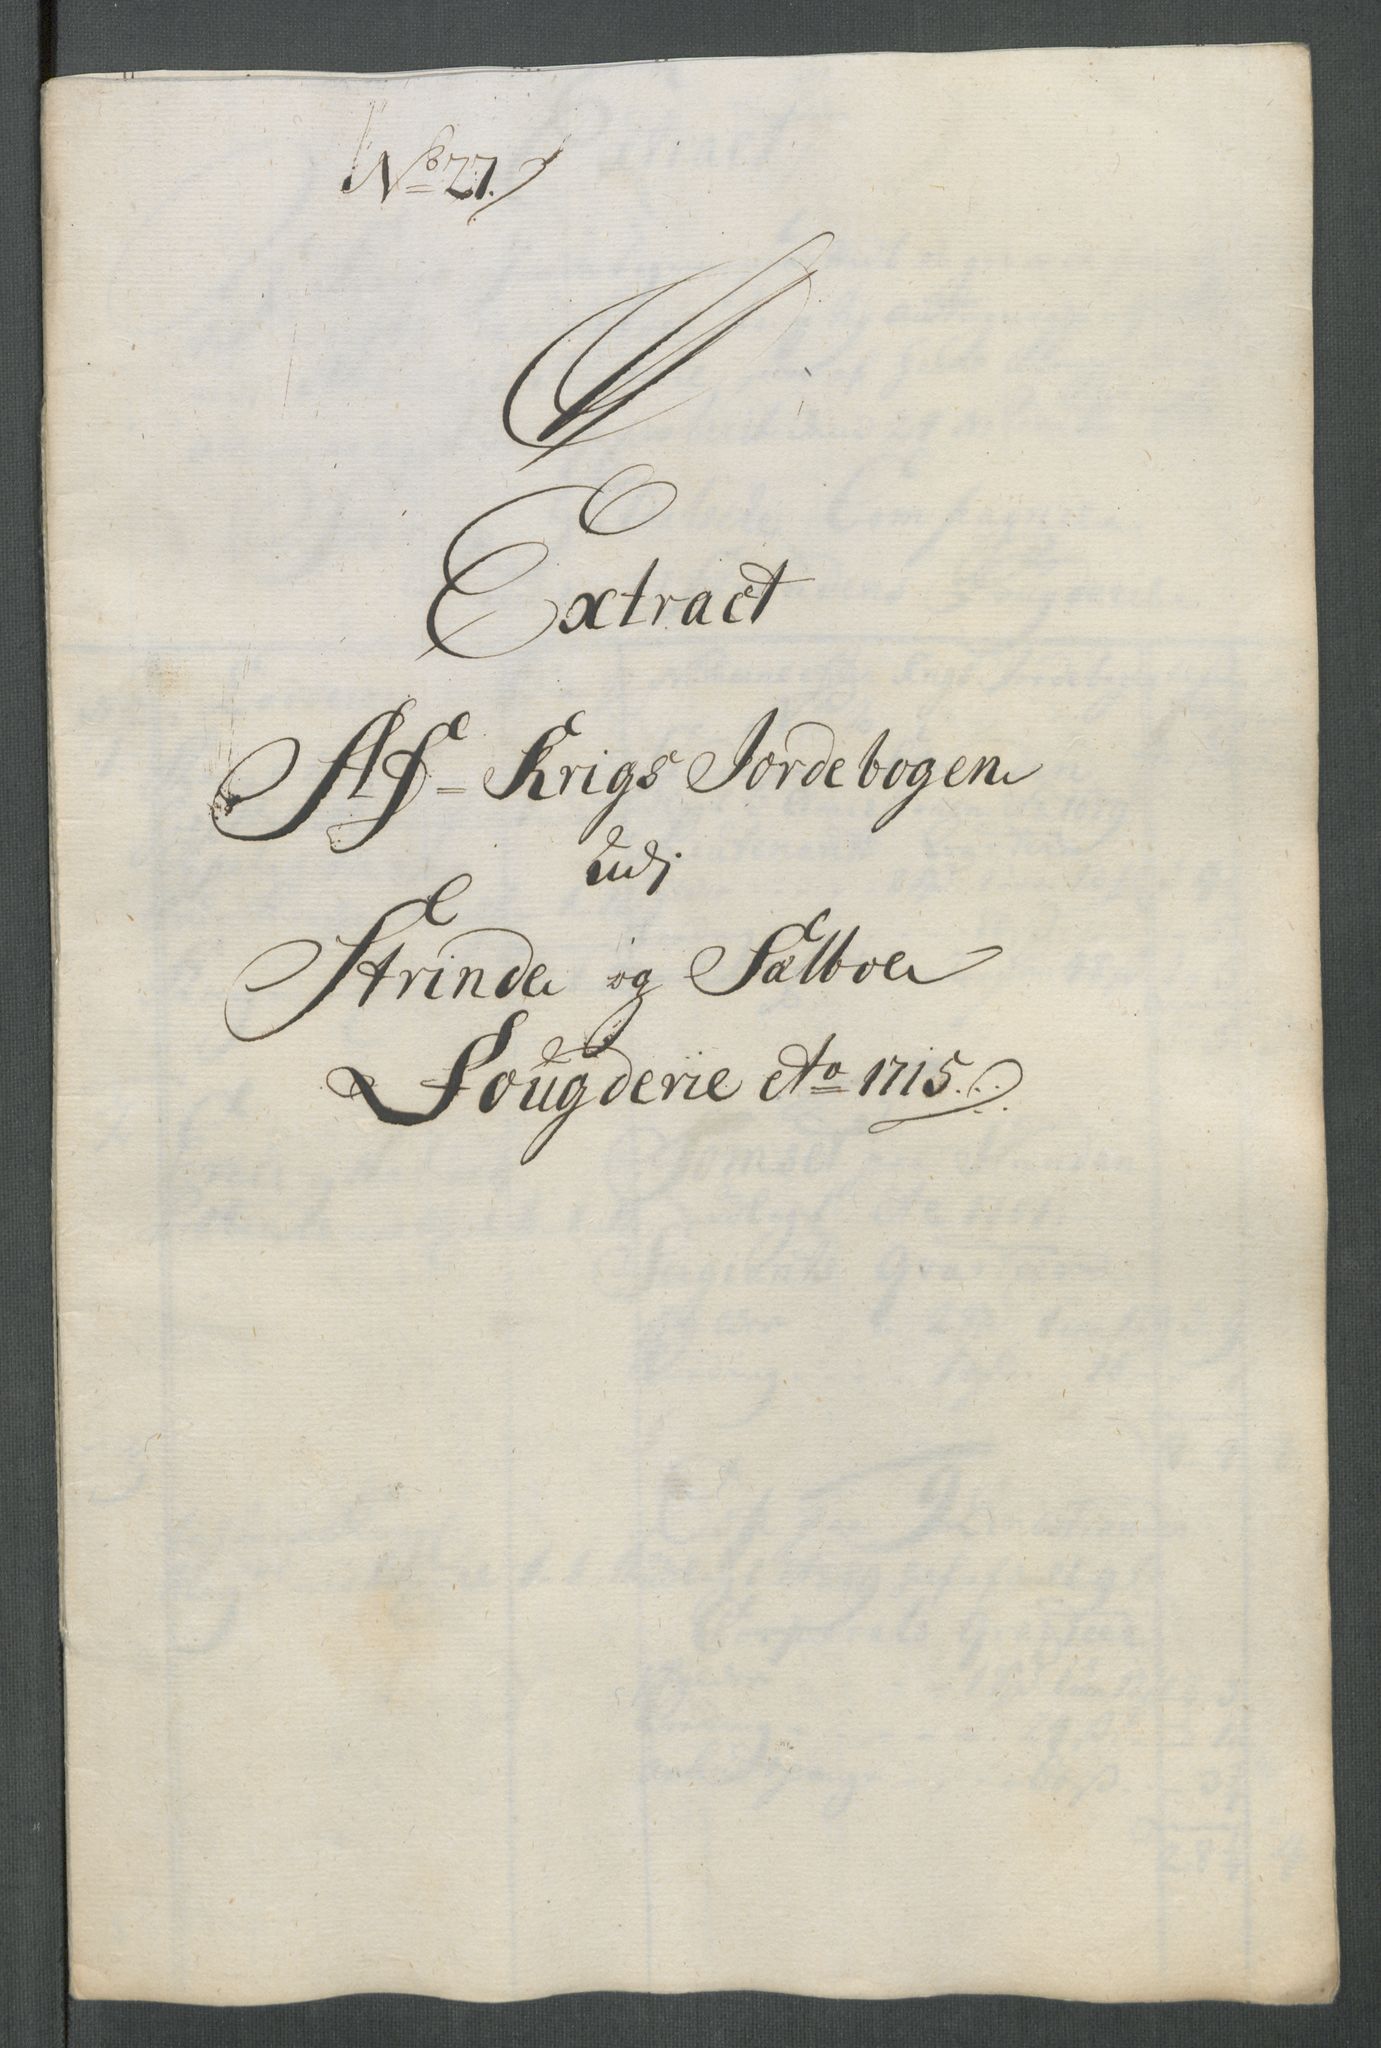 No 27.
Extract
Af Krigs Jordebogen
udj
Strinde og Sælboe
Fougderie Ao 1715.